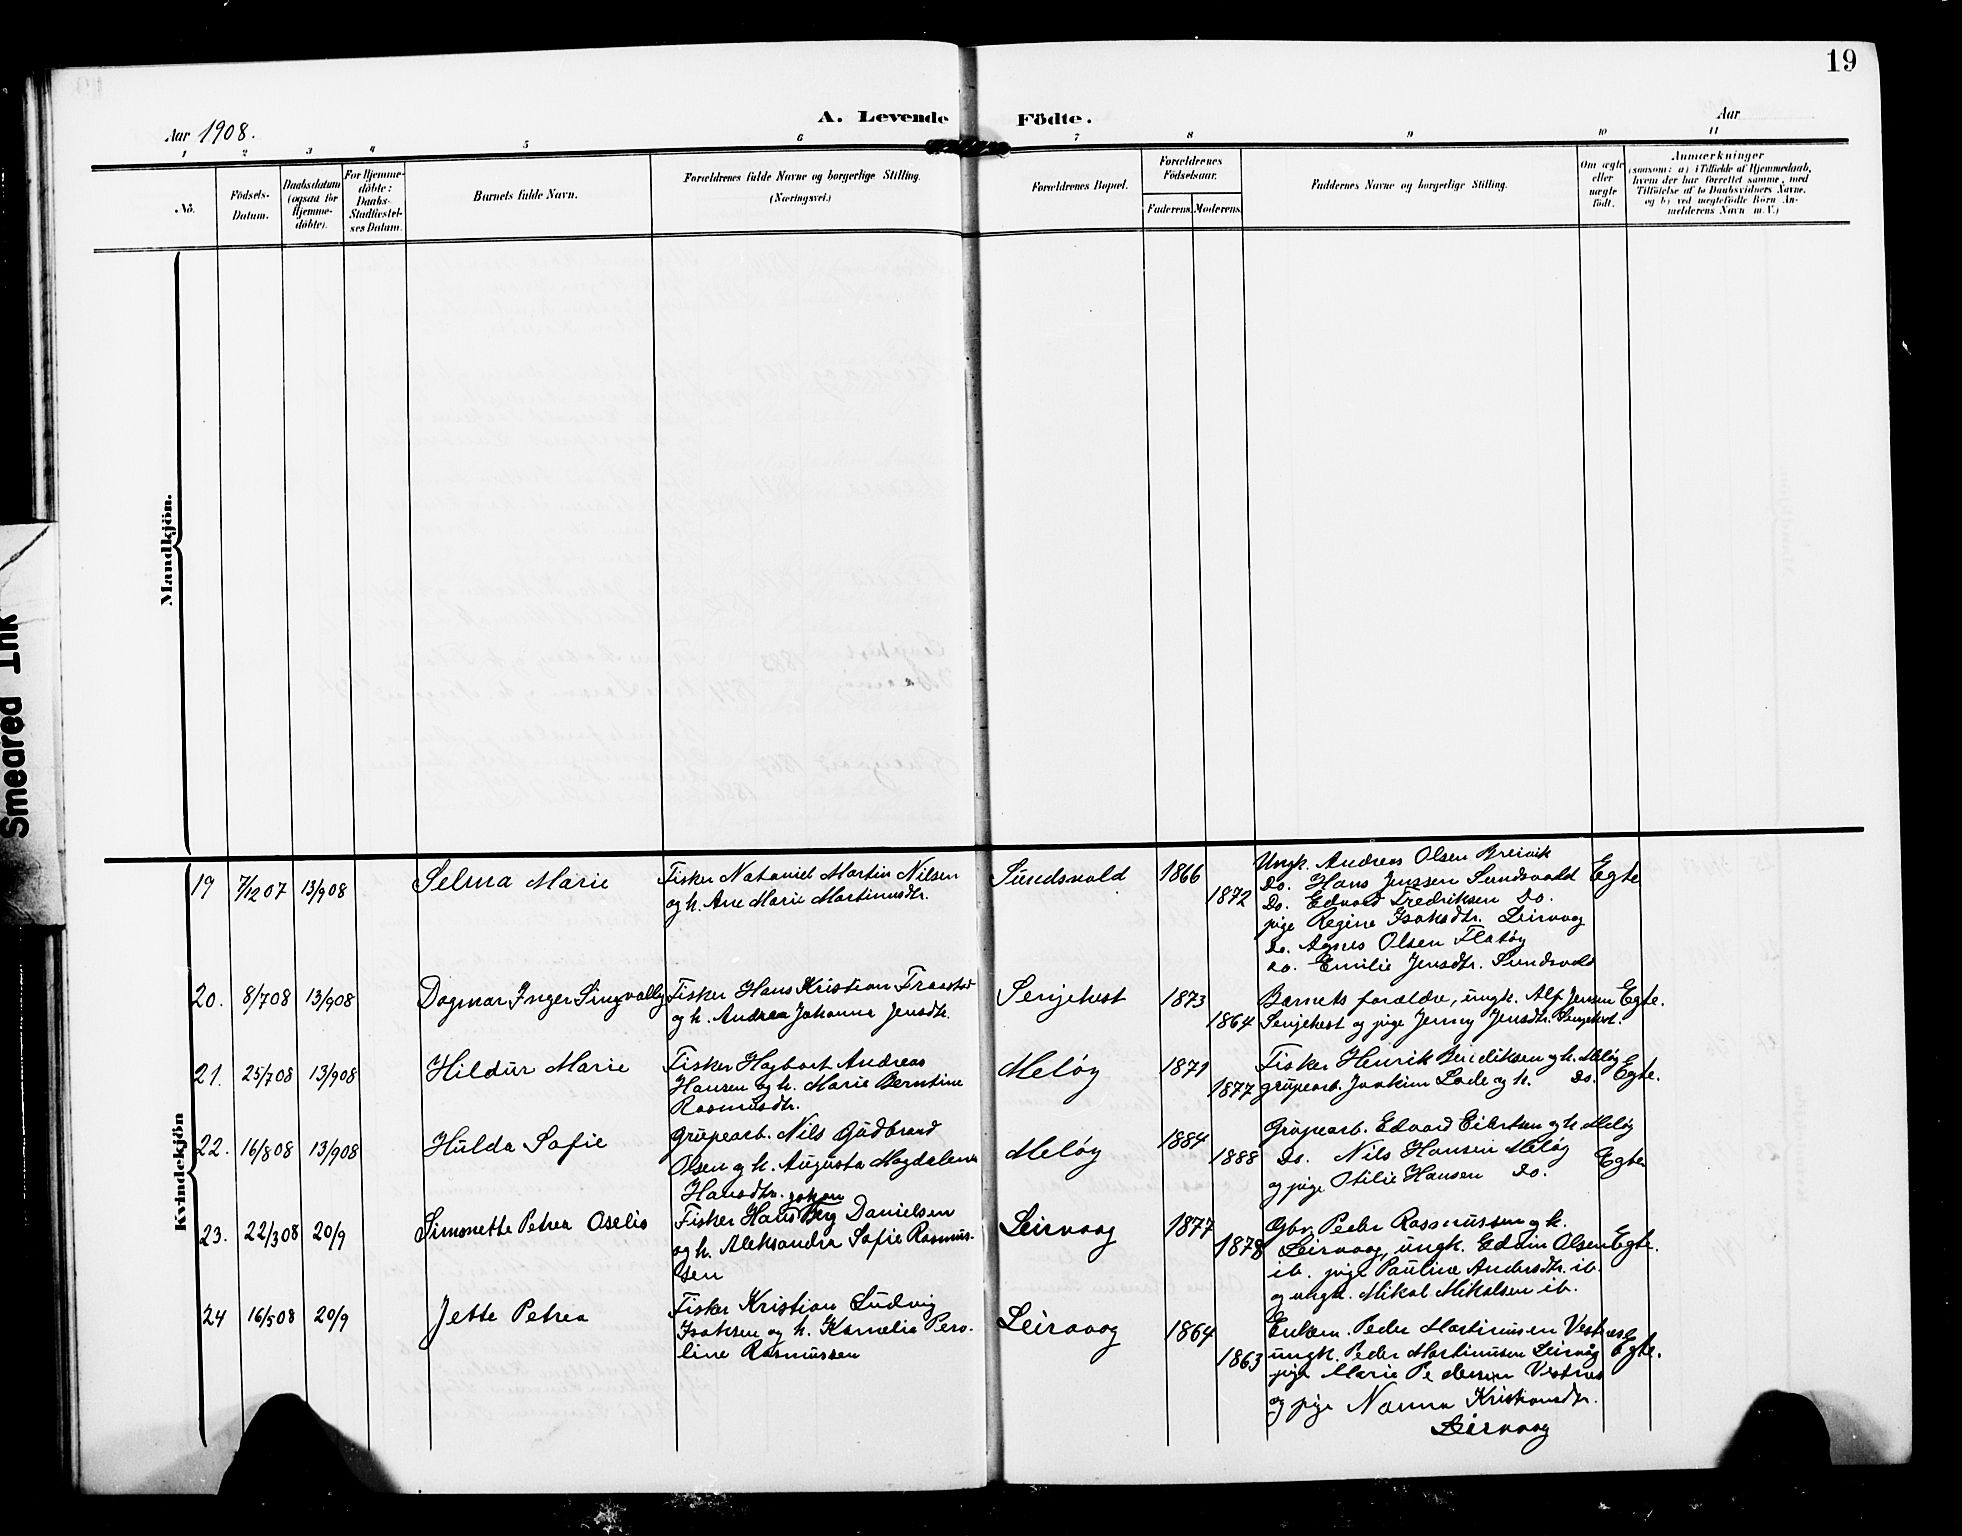 19
A. Levende Födte.
Aar 1908.
Aar
1 2 3 4 5 6 7 8 9 10 11
No.
Födsels-Datum.
Daabsdatum (ogsaa for Hjemme-döbte).
For Hjemme-döbte: Daabs-Stadfæstel-ses Datum.
Barnets fulde Navn.
Forældrenes fulde Navne og borgerlige Stilling.
(Næringsvei.)
Forældrenes Bopæl.
Forældrenes Födselsaar.
Faderens. Moderens.
Faddernes Navne og borgerlige Stilling.
Om ægte eller uægte födt.
Anmærkninger
(saasom: a) i Tilfælde af Hjemmedaab,
hvem der har forrettet samme, med
Tilföielse af to Daabsvidners Navne,
og b) ved uægtefödte Börn An-
melderens Navn m. V.)
Mandkjön.
Kvindekjön
Smeared Ink
19 7/12 07 13/9 08 Selma Marie
Fisker Nataniel Martin Nilsen
og h. Ane Marie Martinusdtr.
Sundsvold 1866 1872
Ungk. Andreas Olsen Breivik
Do. Hans Jenssen Sundsvold
Do. Edvard Fredriksen Do.
pige Regine Isaksdtr. Leirvaag
Do. Agnes Olsen Flatøy
Do. Emilie Jensdtr. Sundsvold
Egte
20. 8/7 08 13/9 08 Dagmar Inger Singvally
Fisker Hans Kristian
og h. Andrea Johanna Jensdtr.
Senjehest 1873 1864
Barnets forældre, ungk. Alf Jensen
Senjehest og pige Jenny Jensdtr. Senjehest.
Egte.
21. 25/7 08 13/9 08 Hildur Marie
Fisker Hagbart Andreas
Hansen og h. Marie Berntine
Rasmusdtr.
Meløy 1871 1877
Fisker Henrik Benediksen og h. Meløy
grubearb. Joakim Lode og h. Do.
Egte.
22. 16/8 08 13/9 08 Hulda Sofie
Grubearb. Nils Gudbrand
Olsen og h. Augusta Magdalena
Hansdtr.
Meløy 1884 1888
Grubearb. Edvard Eilertsen og h. Meløy
Do. Nils Hansen Meløy
og pige Otilie Hansen Do.
Egte
23. 22/3 08 20/9 Simonette Petrea Oselie
Fisker Hans Johan Berg Danielsen
og h. Aleksandra Sofie Rasmus-
sen
Leirvaag 1877 1878
Gbr. Peder Rasmussen og h.
Leirvaag, ungk. Edvin Olsen
ib. pige Pauline Andersdtr. ib.
og ungk. Mikal Mikalsen ib.
Egte.
24 16/5 08 20/9 Jette Petrea
Fisker Kristian Ludvig
Isaksen og h. Kornelia Pero-
line Rasmussen
Leirvaag 1864 1863
Enkem. Peder Martinusen Vestnes
ungk. Peder Martinusen Leirvåg
pige Marie Pedersen Vestnes
og pige Nanna Kristiansdtr.
Leirvaag
Egte.